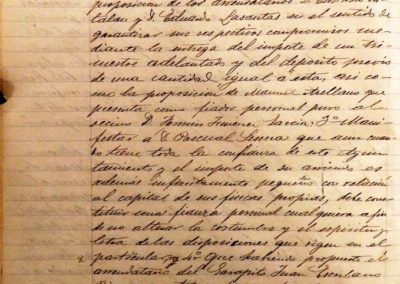 proposicion de los arrendatarios
talan y D. Eduardo Dasentas en el sentido de
garantizar sus respectivos compromisos me-
diante la entrega del importe de un tri-
mestre adelantado y del deposito previo
de una cantidad igual a esta, asi co-
mo la proposicion de Manuel Arellano que
presenta como fiador personal puro al
vecino D. Fermin Jimenez Garcia; 3º Mani-
festar a D. Pascual Serna que aun cuan-
do tiene toda la confianza de este Ayun-
tamiento y el importe de su arriendo es
además infinitamente pequeño con relacion
al capital de sus fincas propias, debe cons-
tituir una fianza personal cualquiera a fin
de no alterar la costumbre y el espiritu y
letra de las disposiciones que rigen en el
particular y 4º Que habiendo propuesto el
arrendatario del Garapito Juan Escolano